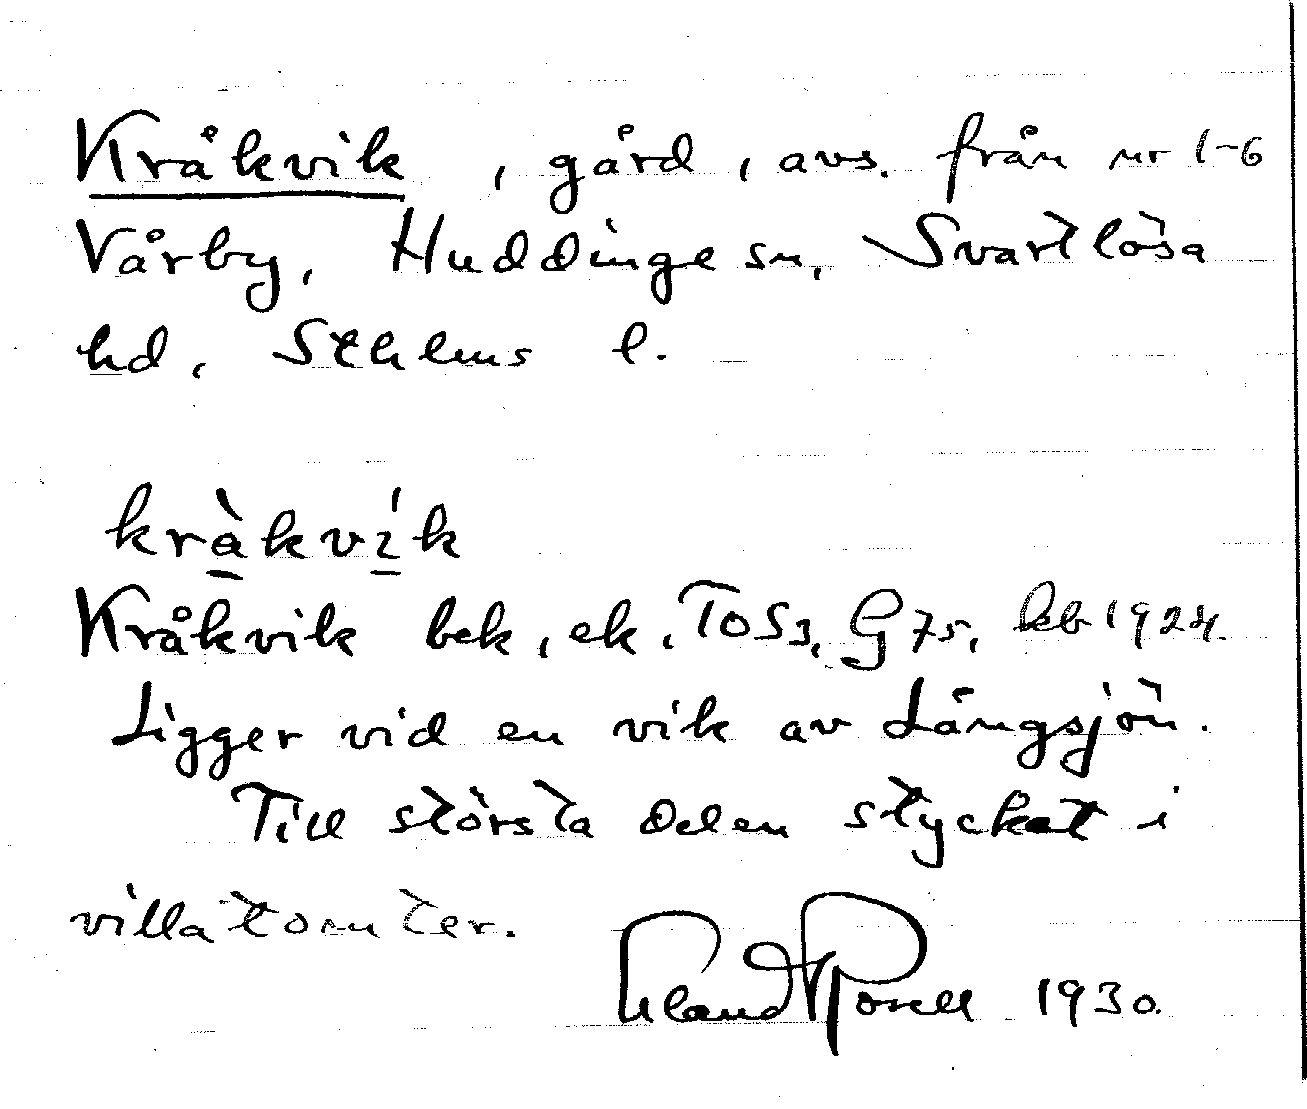 Kråkvik, gård, avs. från nr 1-6
Vårby, Huddinge sn, Svartlösa
hd, Sthlms l.
kràkvík
Kråkvik bek, ek, TOS3, G75, kb 1924.
Ligger vid en vik av Långsjön.
Till största delen styckat i
villatomter.
Rosell 1930.